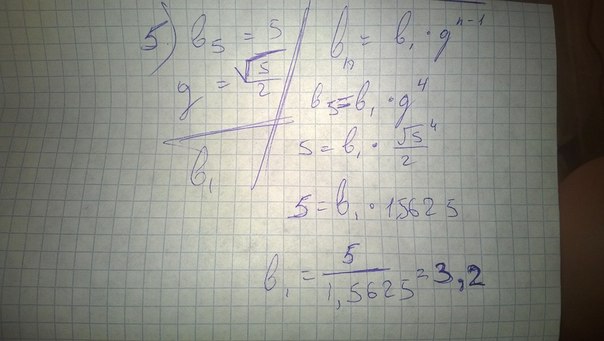 5) b₅ = 5
q = √5/2
b₁
bₙ = b₁ · qⁿ⁻¹
b₅ = b₁ · q⁴
5 = b₁ · √5⁴/2
5 = b₁ · 1,5625
b₁ = 5/1,5625 = 3,2